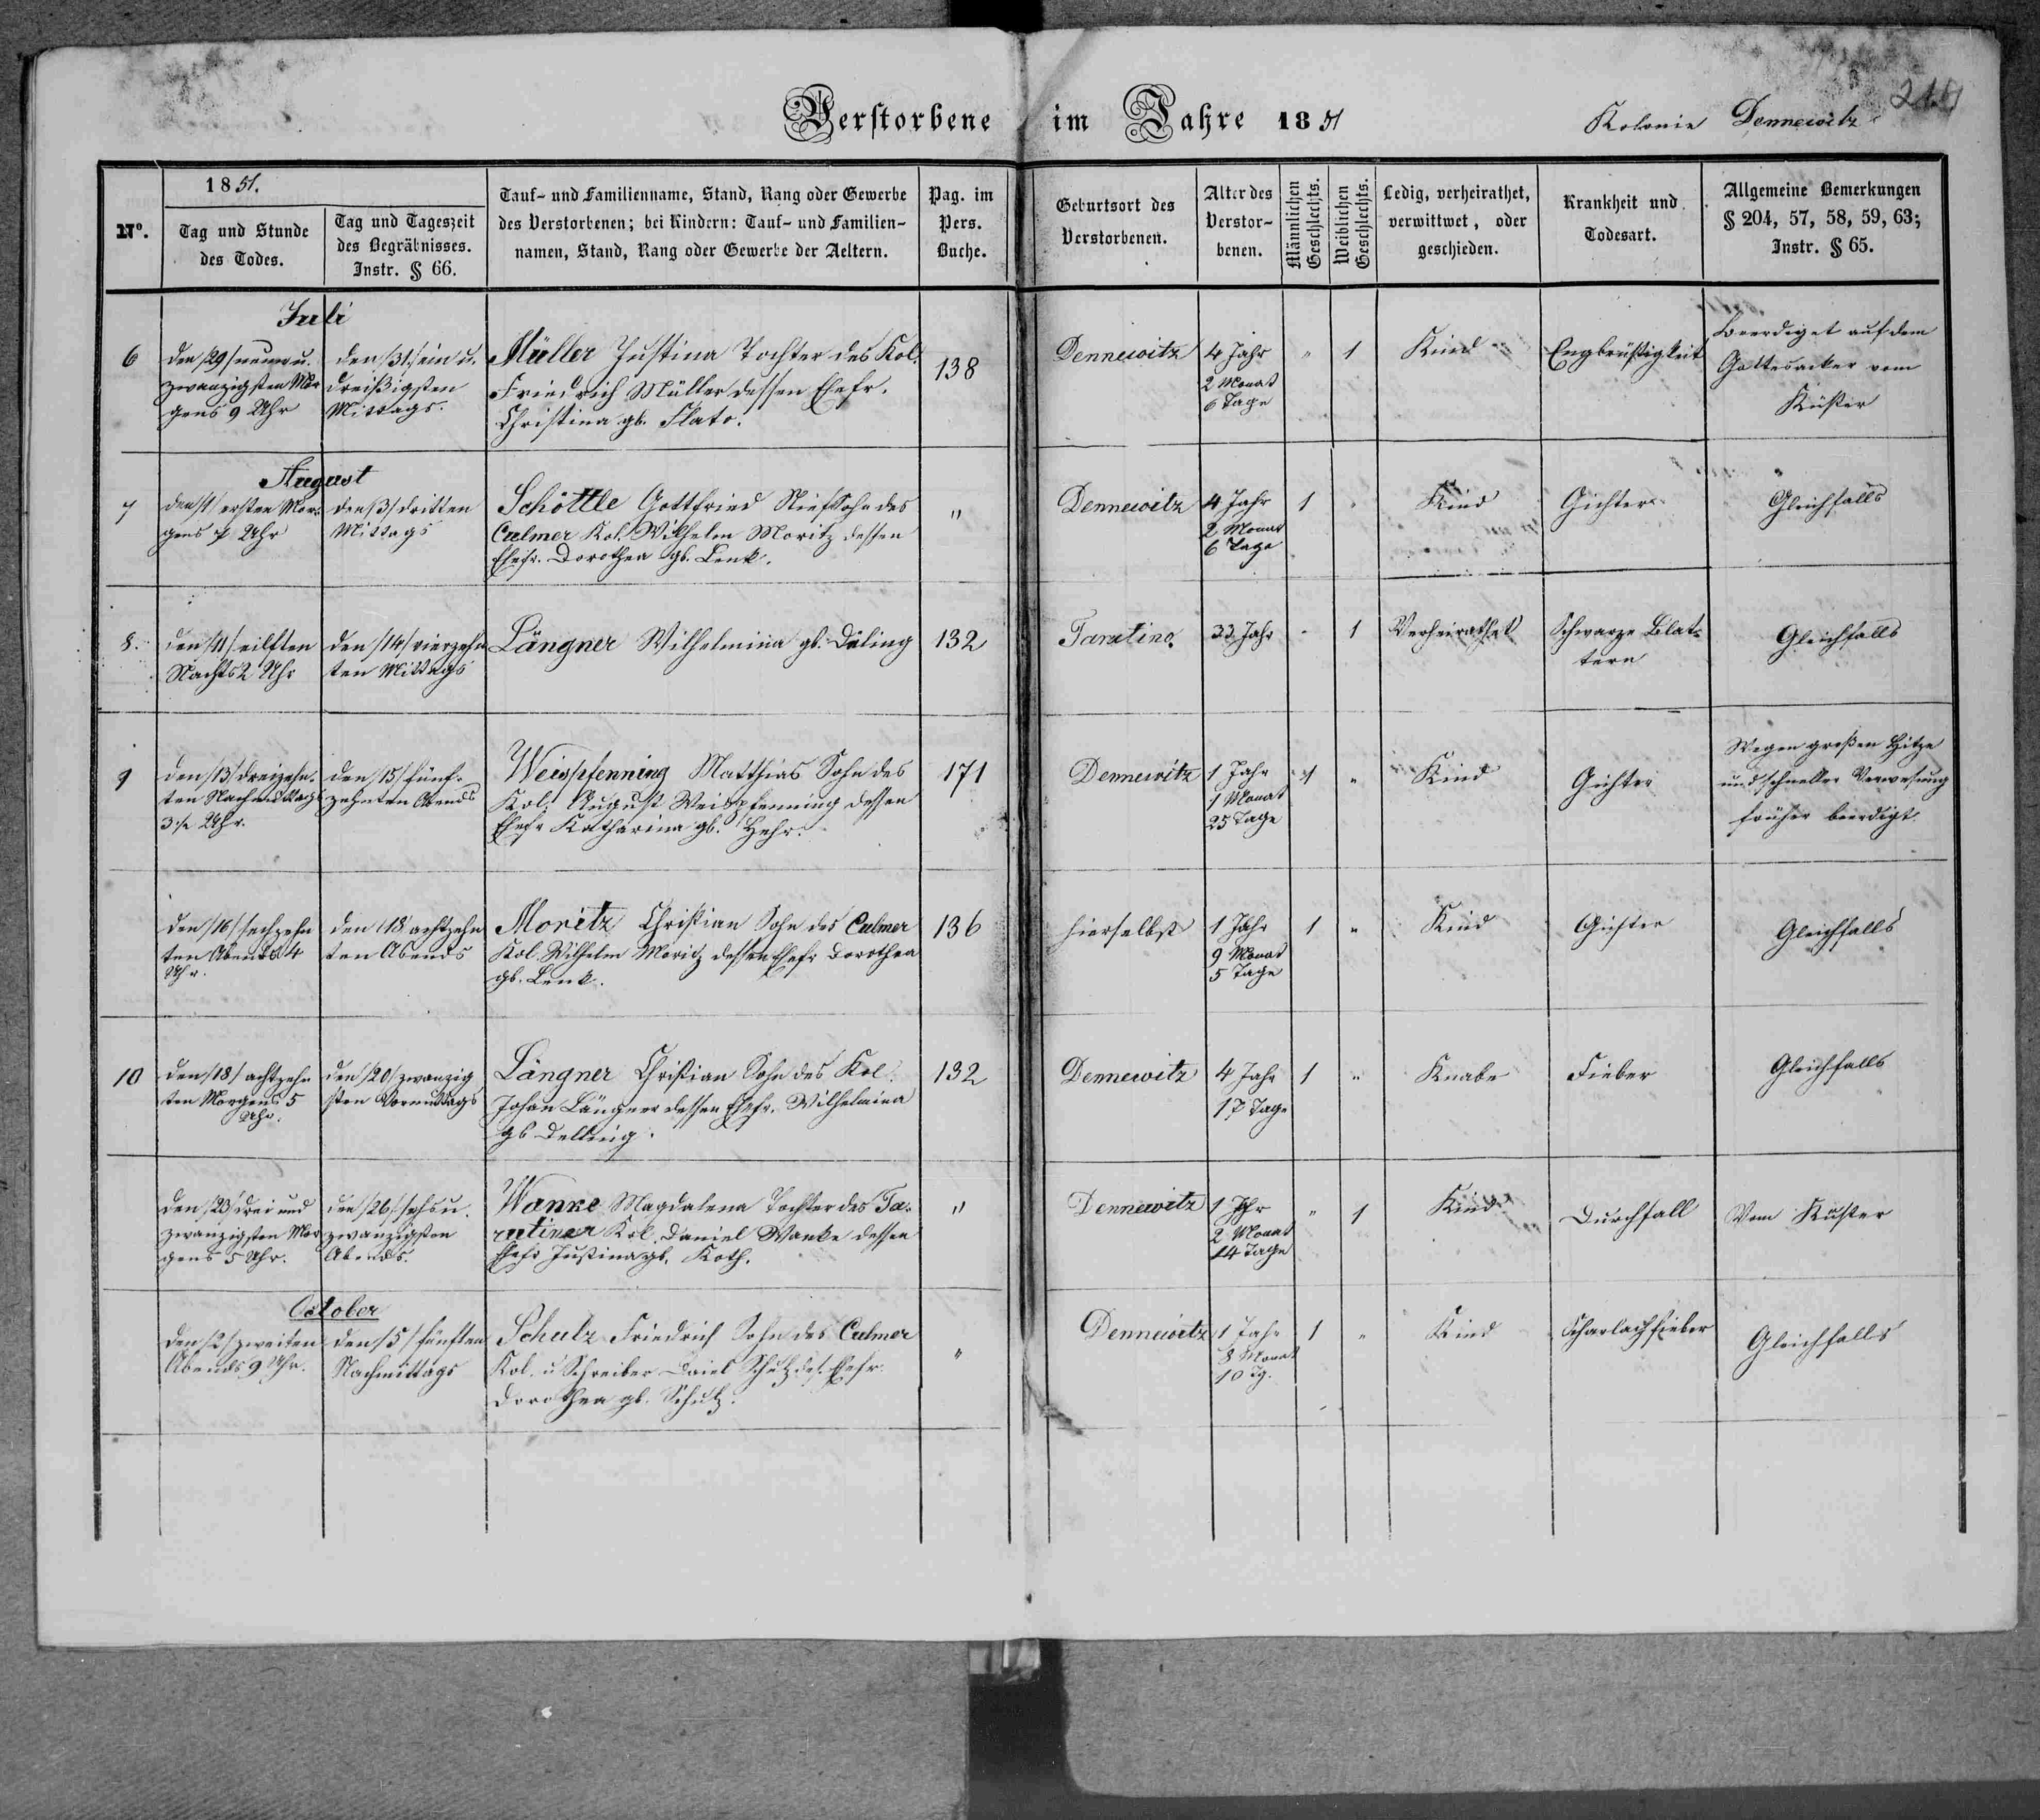 Verstorbene im Jahre 1851
Kolonie Dennewitz
1851.
Nº.
Tag und Stunde
des Todes.
Tag und Tageszeit
des Begräbnisses.
Instr. § 66.
Tauf- und Familienname, Stand, Rang oder Gewerbe
des Verstorbenen; bei Kindern: Tauf- und Familien-
namen, Stand, Rang oder Gewerbe der Aeltern.
Pag. im
Pers.
Buche.
Geburtsort des
Verstorbenen.
Alter des
Verstor-
benen.
Männlichen
Geschlechts.
Weiblichen
Geschlechts.
Ledig, verheirathet,
verwittwet, oder
geschieden.
Krankheit und
Todesart.
Allgemeine Bemerkungen
§ 204, 57, 58, 59, 63;
Instr. § 65.
Juli
6
den /29/ neun u.
zwanzigsten Mor
gens 9 Uhr
den /31/ ein u.
dreißigsten
Mittags.
Müller Justina Tochter des Kol.
Friedrich Müller dessen Ehefr.
Christina gb. Flato.
138
Dennewitz
4 Jahr
2 Monat
6 Tage
" 1
Kind
Engbrüstigkeit
Beerdiget auf dem
Gottesacker vom
Küster
August
7
den /1/ ersten Mor-
gens Uhr
den /3/ dritten
Mittags
Schöttle Gottfried Stiefsohn des
Culmer Kol. Wilhelm Moritz dessen
Ehefr. Dorothea gb. Lenk.
"
Dennewitz
4 Jahr
2 Monat
6 Tage
1 "
Kind
Gichter
Gleichfalls
8.
den /11/ eilften
Nachts 2 Uhr
den /14/ vierzehn
ten Mittags
Längner Wilhelmina gb. Däling
132
Tarutino.
33 Jahr
" 1
Verheirathet
Schwarze Blat-
tern
Gleichfalls
9
den /13/ dreizehn-
ten Nachmittags
3 ½ Uhr.
den /15/ fünf-
zehnten Abends
Weispfenning Matthias Sohn des
Kol. August Weispfenning dessen
Ehefr Katharina gb. Hehr.
171
Dennewitz
1 Jahr
1 Monat
25 Tage
1 "
Kind
Gichter
Wegen großen Hitze
und schneller Verwesung
früher beerdigt.
den /16/ sechzehn
ten Abends 4
Uhr.
den /18/ achtzehn
ten Abends
Moritz Christian Sohn des Culmer
Kol. Wilhelm Moritz dessen Ehefr Dorothea
gb. Lenk.
136
hierselbst
1 Jahr
9 Monat
5 Tage
1 "
Kind
Gichter
Gleichfalls
10
den /18/ achtzehn
ten Morgens 5
Uhr.
den /20/ zwanzig
sten Vormittags
Längner Christian Sohn des Kol.
Johan Längner dessen Ehefr. Wilhelmina
gb Delling.
132
Dennewitz
4 Jahr
17 Tage
1 "
Knabe
Fieber
Gleichfalls
den /23/ drei und
zwanzigsten Mor
gens 5 Uhr.
den /26/ sechs u.
zwanzigsten
Abends.
Wanke Magdalena Tochter des Ta-
rutiner Kol. Daniel Wanke dessen
Ehefr Justina gb. Koth.
"
Dennewitz
1 Jahr
2 Monat
14 Tage
" 1
Kind
Durchfall
Vom Küster
October
den /2/ zweiten
Abends 9 Uhr.
den /5/ fünften
Nachmittags
Schulz Friedrich Sohn des Culmer
Kol. u Schreiber Daiel Schulz des. Ehefr.
Dorothea gb. Schulz.
"
Dennewitz
1 Jahr
8 Monat
10 Tg.
1 "
Kind
Scharlachfieber
Gleichfalls